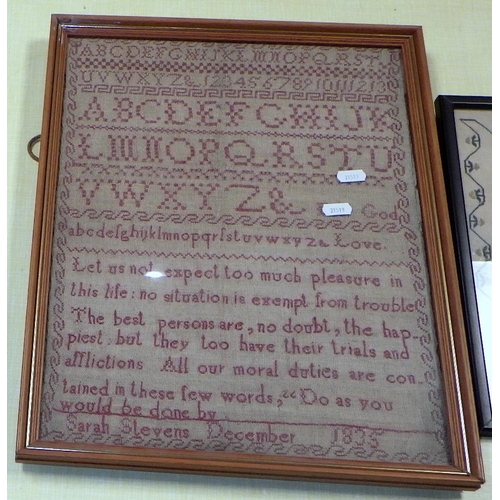 ABCDEFGHIJKLMNOPQRST
UVWXYZ&12345678910111213
ABCDEFGHIJK
LMNOPQRSTU
VWXYZ& God
abcdefghijklmnopqrſstuvwxyz& Love.
Let us not expect too much pleasure in
this life: no situation is exempt from trouble
The best persons are, no doubt, the hap-
piest: but they too have their trials and
afflictions All our moral duties are con-
tained in these few words, “Do as you
would be done by
Sarah Stevens December 1835